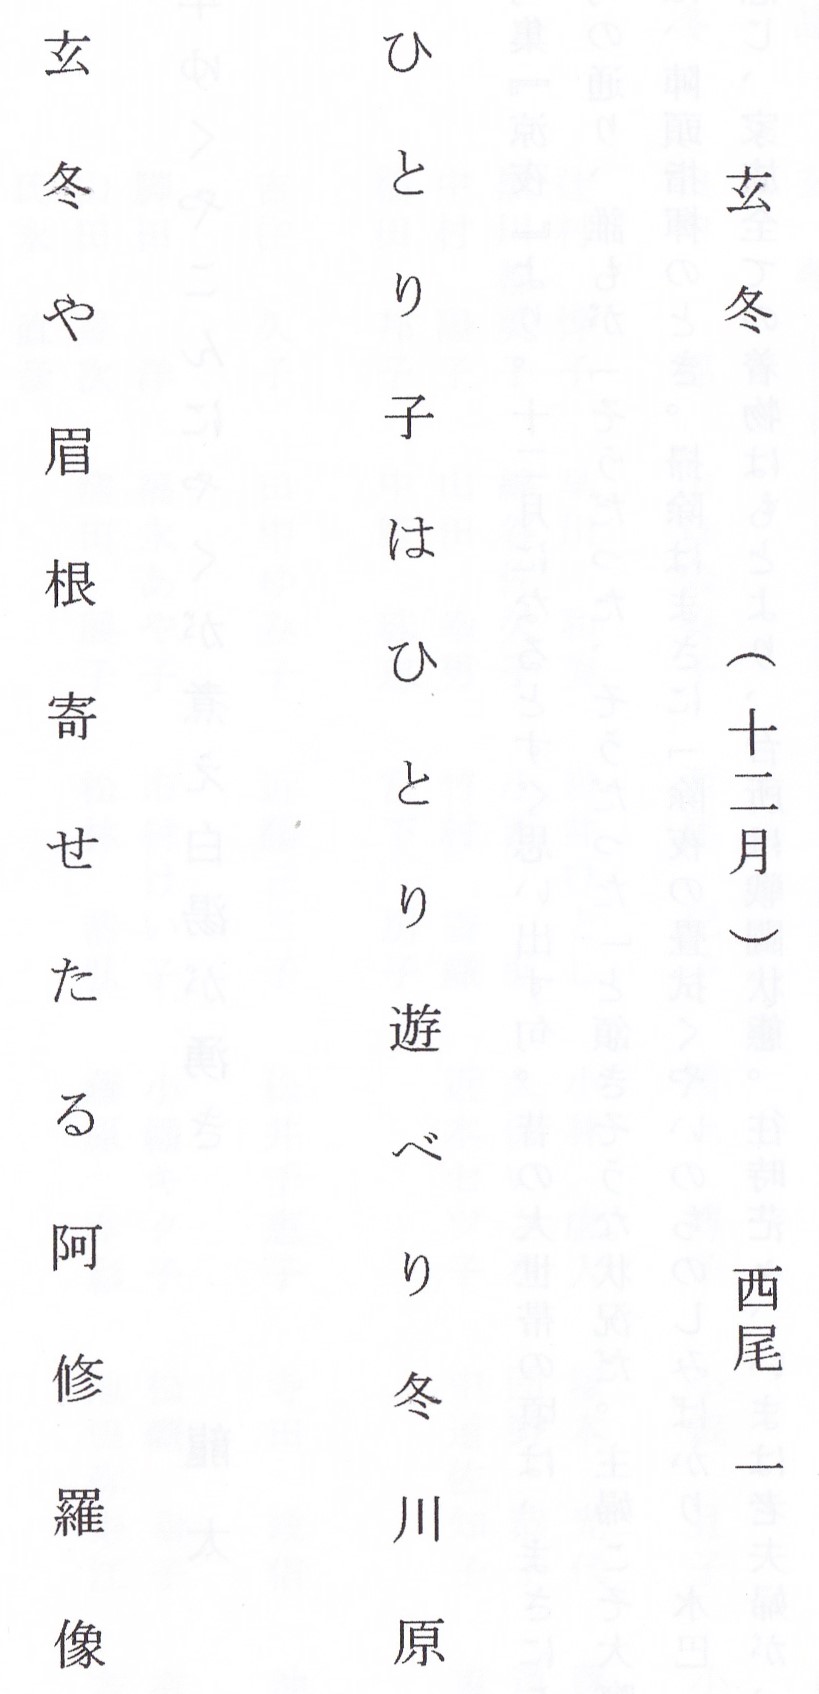 玄冬　（十二月）　西尾　一
ひとり子はひとり遊べり冬川原
玄冬や眉根寄せたる阿修羅像